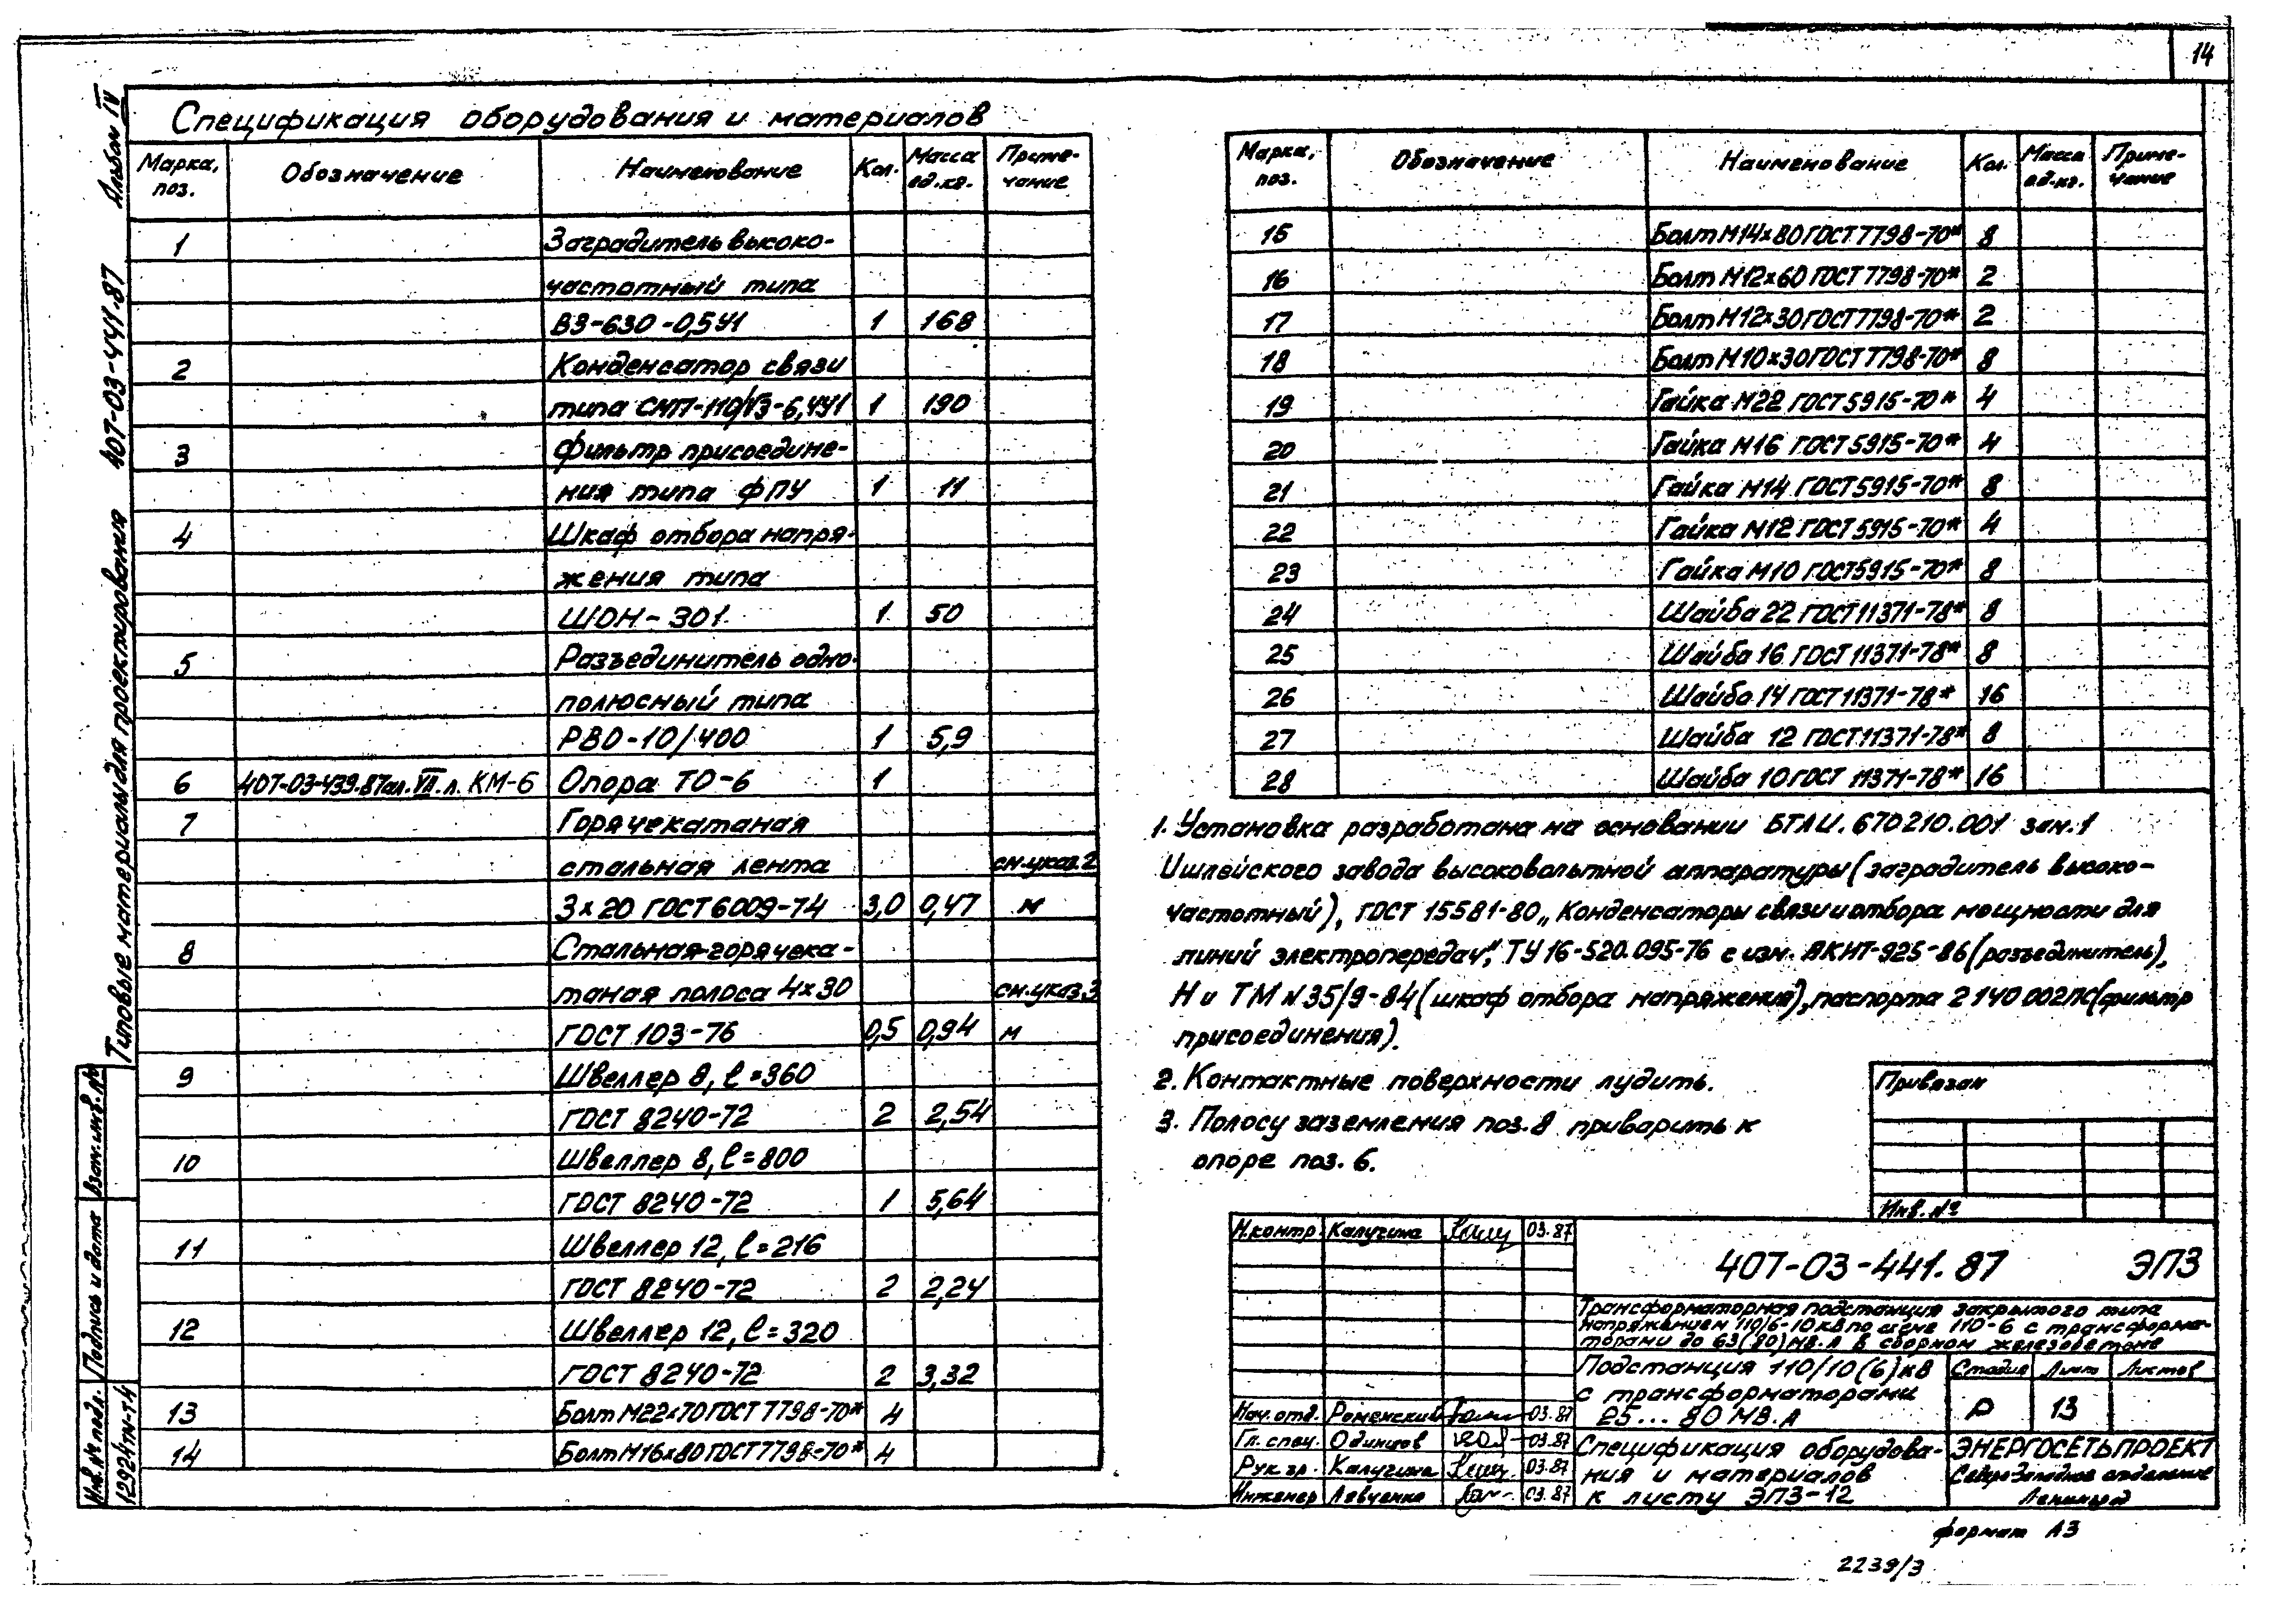 14
Альбом IV
407-03-441.87
Типовые материалы для проектирования
Взам.инв.№
Подпись и дата
Инв.№ подл.
12924тм-т4
Спецификация оборудования и материалов
Марка, поз. Обозначение Наименование Кол. Масса ед.кг. Приме-чание
1 Заградитель высоко-
частотный типа
ВЗ-630-0,5У1 1 168
2 Конденсатор связи
типа СМП-110/√3-6,4У1 1 190
3 Фильтр присоедине-
ния типа ФПУ 1 11
4 Шкаф отбора напря-
жения типа
ШОН-301 1 50
5 Разъединитель одно-
полюсный типа
РВО-10/400 1 5,9
6 407-03-439.87 ал. VII. л. КМ-6 Опора ТО-6 1
7 Горячекатаная
стальная лента см.указ.2
3×20 ГОСТ 6009-74 3,0 0,47 м
8 Стальная горячека-
таная полоса 4×30 см.указ.3
ГОСТ 103-76 0,5 0,94 м
9 Швеллер 8, ℓ=360
ГОСТ 8240-72 2 2,54
10 Швеллер 8, ℓ=800
ГОСТ 8240-72 1 5,64
11 Швеллер 12, ℓ=216
ГОСТ 8240-72 2 2,24
12 Швеллер 12, ℓ=320
ГОСТ 8240-72 2 3,32
13 Болт М22×70 ГОСТ 7798-70* 4
14 Болт М16×80 ГОСТ 7798-70* 4
Марка, поз. Обозначение Наименование Кол. Масса ед.кг. Приме-чание
15 Болт М14×80 ГОСТ 7798-70* 8
16 Болт М12×60 ГОСТ 7798-70* 2
17 Болт М12×30 ГОСТ 7798-70* 2
18 Болт М10×30 ГОСТ 7798-70* 8
19 Гайка М22 ГОСТ 5915-70* 4
20 Гайка М16 ГОСТ 5915-70* 4
21 Гайка М14 ГОСТ 5915-70* 8
22 Гайка М12 ГОСТ 5915-70* 4
23 Гайка М10 ГОСТ 5915-70* 8
24 Шайба 22 ГОСТ 11371-78* 8
25 Шайба 16 ГОСТ 11371-78* 8
26 Шайба 14 ГОСТ 11371-78* 16
27 Шайба 12 ГОСТ 11371-78* 8
28 Шайба 10 ГОСТ 11371-78* 16
1. Установка разработана на основании БТЛИ.670210.001 зам.1
Ишлейского завода высоковольтной аппаратуры (заградитель высоко-
частотный), ГОСТ 15581-80 „Конденсаторы связи и отбора мощности для
линий электропередач", ТУ 16-520.095-76 с изм. ЯКНТ-925-86 (разъединитель),
Н и ТМ N 35/9-84 (шкаф отбора напряжения), паспорта 2140.002ПС (фильтр
присоединения).
2. Контактные поверхности лудить.
3. Полосу заземления поз. 8 приварить к
опоре поз. 6.
Привязан
Инв.№
Н.контр. Калугина 03.87
407-03-441.87 ЭПЗ
Трансформаторная подстанция закрытого типа
напряжением 110/6-10 кВ по схеме 110-6 с трансформа-
торами до 63(80) МВ.А в сборном железобетоне
Подстанция 110/10(6)кВ
с трансформаторами
25...80 МВ.А
Стадия Лист Листов
Р 13
Нач.отд. Роменский 03.87
Гл.спец. Одинцов 03.87
Рук.гр. Калугина 03.87
Инженер Левченко 03.87
Спецификация оборудова-
ния и материалов
к листу ЭПЗ-12
ЭНЕРГОСЕТЬПРОЕКТ
Северо-Западное отделение
Ленинград
формат А3
2239/3